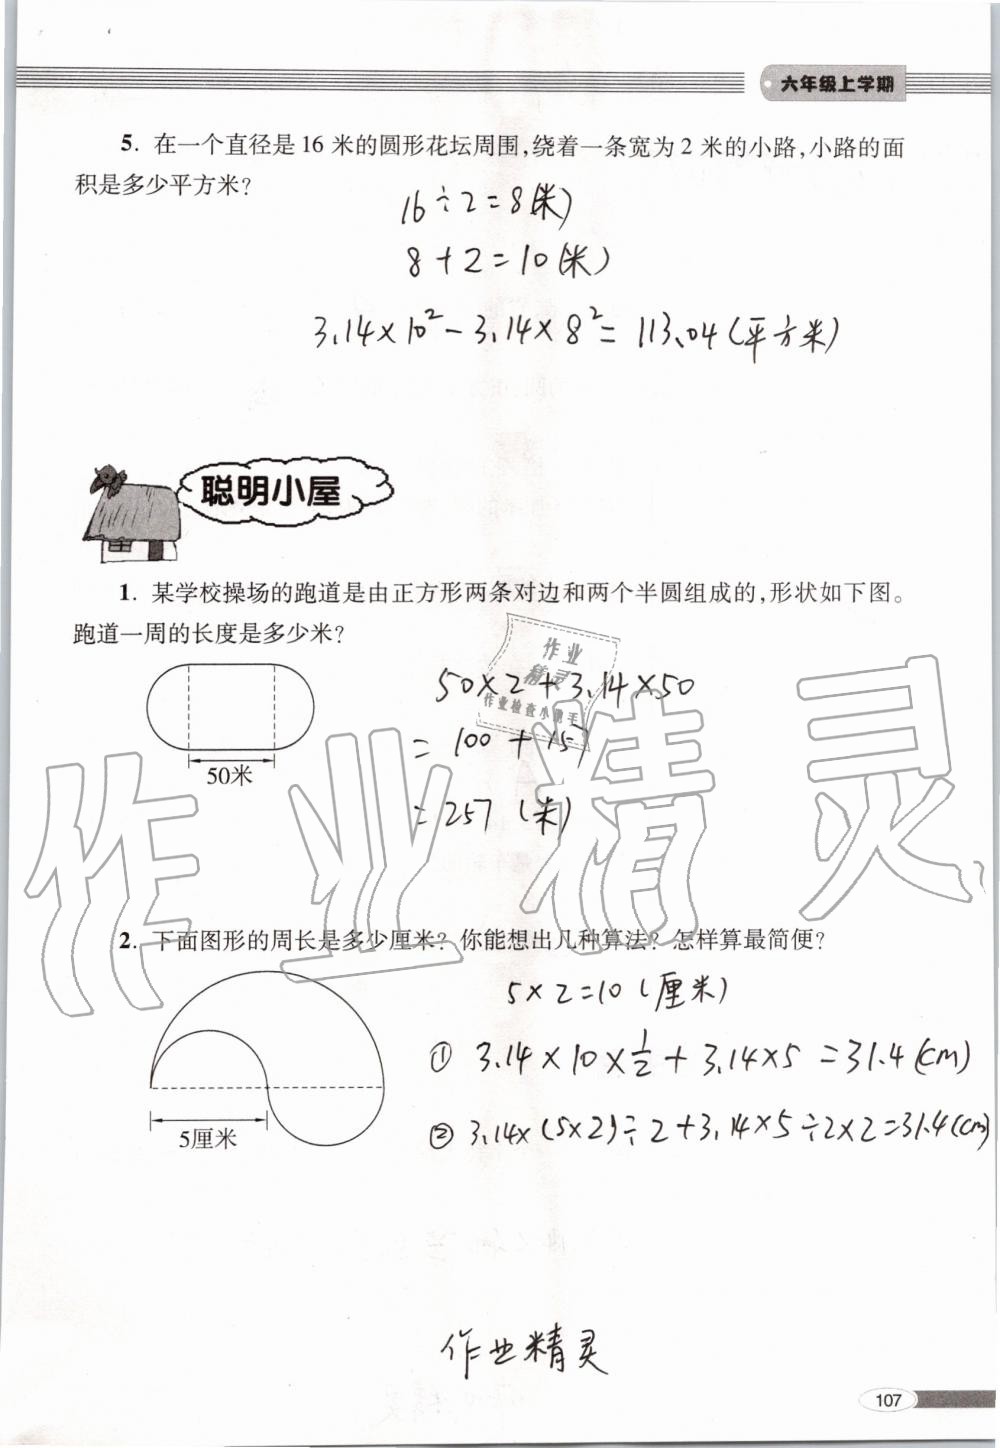 六年级上学期
5. 在一个直径是16米的圆形花坛周围,绕着一条宽为2米的小路,小路的面
积是多少平方米?
16÷2=8(米)
8+2=10(米)
3.14×10²-3.14×8²=113.04(平方米)
聪明小屋
1. 某学校操场的跑道是由正方形两条对边和两个半圆组成的,形状如下图。
跑道一周的长度是多少米?
50米
50×2+3.14×50
=100+157
=257(米)
作业
精灵
作业检查小帮手
作业精灵
2. 下面图形的周长是多少厘米?你能想出几种算法?怎样算最简便?
5厘米
5×2=10(厘米)
① 3.14×10×½+3.14×5=31.4(cm)
② 3.14×(5×2)÷2+3.14×5÷2×2=31.4(cm)
作业精灵
107